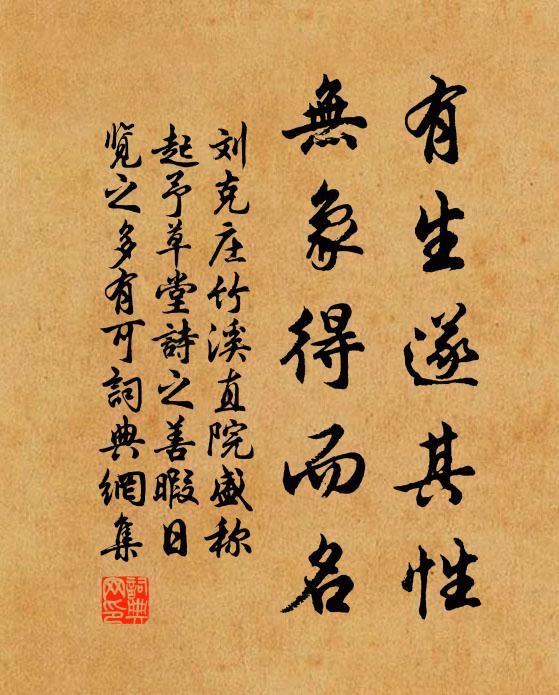 有生遂其性
無象得而名
刘克庄竹溪直院盛称
起予草堂詩之善暇日
览之多有可詞典網集
詞典
网印